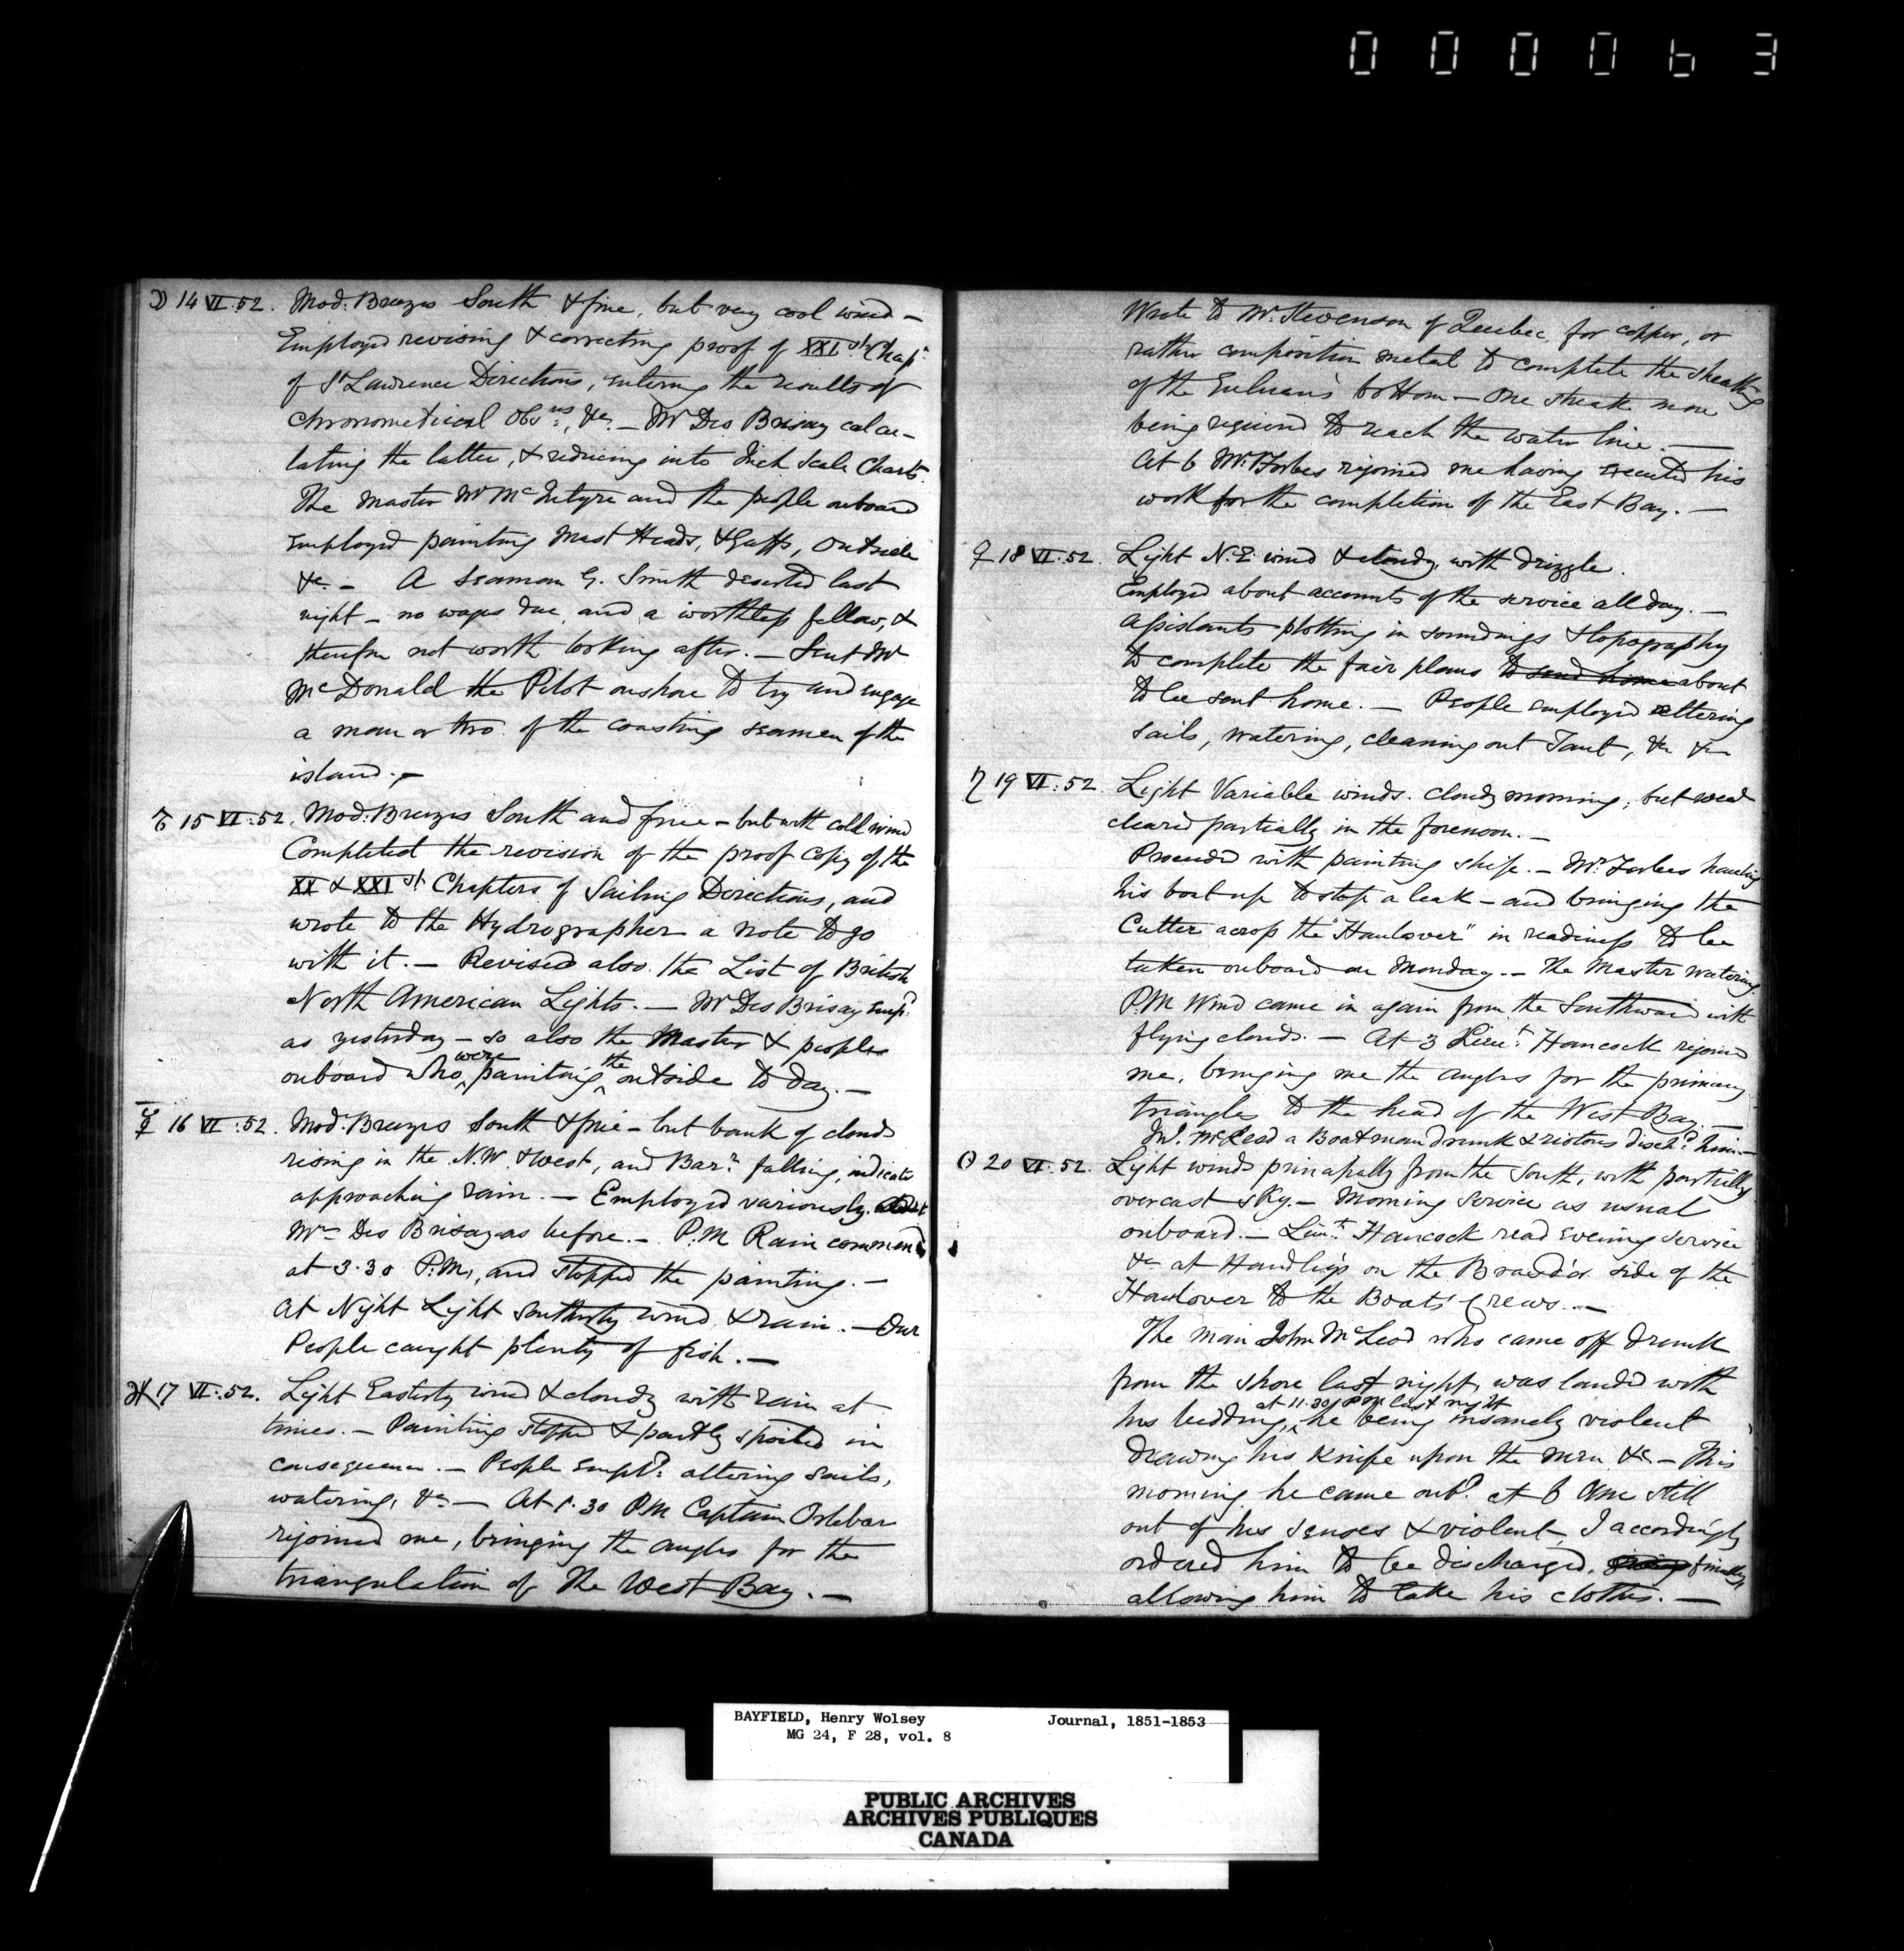 000063
☽ 14 VI. 52. Mod: Breezes South & fine, but very cool wind –
Employed revising & correcting proof of XXIst Chapr
of St Lawrence Directions, entering the results of
chronometrical Obsns, &c. – Mr Des Brisay calcu-
lating the latter, & reducing into Inch Scale Charts.
The Master Mr McIntyre and the people onboard
employed painting Mast Heads, & Gaffs, Outside
&c – A seaman G. Smith deserted last
night – no wages due, and a worthless fellow, &
therefore not worth looking after. – Sent Mr
McDonald the Pilot onshore to try and engage
a man or two of the coasting seamen of the
island. –
♂ 15 VI. 52. Mod: Breezes South and fine – but with cold wind
Completed the revision of the proof copy of the
XX & XXIst Chapters of Sailing Directions, and
wrote to the Hydrographer a note to go
with it. – Revised also the List of British
North American Lights. – Mr Des Brisay empd
as yesterday – so also the Master & people
onboard who were painting the outside to day. –
☿ 16 VI. 52. Mod: Breezes South & fine – but bank of clouds
rising in the N.W. & West, and Barr falling, indicate
approaching rain. – Employed variously.
Mr Des Brisay as before. – P.M Rain commend
at 3.30 P.M, and stopped the painting. –
At Night Light Southerly wind & rain. – Our
People caught plenty of fish. –
♃ 17 VI. 52. Light Easterly wind & cloudy with rain at
times. – Painting stopped & partly spoiled in
consequence. – People empld: altering sails,
watering, &c – At 5.30 PM Captain Orlebar
rejoined me, bringing the angles for the
triangulation of the West Bay. –
Wrote to Mr. Stevenson of Quebec, for copper, or
rather composition metal to complete the sheathing
of the Gulnare's bottom – One streak more
being required to reach the water line. –
At 6 Mr. Forbes rejoined me having executed his
work for the completion of the East Bay. –
♀ 18 VI. 52. Light N.E. wind & cloudy, with drizzle.
Employed about accounts of the service all day. –
Assistants plotting in soundings & topography
to complete the fair plans to send home about
to be sent home. – People employed altering
sails, watering, cleaning out Tank, &c &c
♄ 19 VI. 52. Light Variable winds. cloudy morning, but
cleared partially in the forenoon. –
Proceeded with painting ship. – Mr. Forbes hauling
his boat up to stop a leak – and bringing the
Cutter across the "Haulover" in readiness to be
taken onboard on Monday. – The Master watering.
P.M Wind came in again from the Southward with
flying clouds. – At 3 Lieut. Hancock rejoined
me, bringing me the angles for the primary
triangles to the head of the West Bay. –
Jno. McLeod a Boatman drunk & riotous dischd him. –
☉ 20 VI. 52. Light winds principally from the South, with partially
overcast sky. – Morning Service as usual
onboard. – Lieut. Hancock read evening service
&c at Handley's on the Brasd'or side of the
Haulover to the Boats' Crews. –
The man John McLeod who came off drunk
from the shore last night, was landed with
his bedding, at 11.30 PM last night he being insanely violent
drawing his knife upon the men &c. – This
morning he came onbd. at 6 AM still
out of his senses & violent, I accordingly
ordered him to be discharged, finally
allowing him to take his clothes. –
BAYFIELD, Henry Wolsey Journal, 1851-1853
MG 24, F 28, vol. 8
PUBLIC ARCHIVES
ARCHIVES PUBLIQUES
CANADA